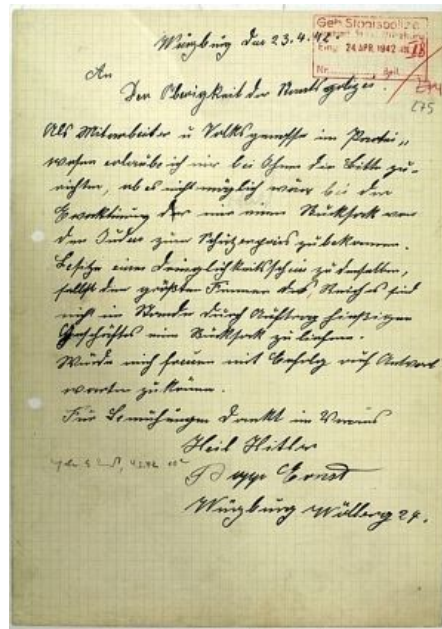 Würzburg den 23.4.42
Geh. Staatspolizei
Eing. 24. APR. 1942
Nr. Beil.
An
Der Obrigkeit der Staatspolizei.
Als Mitarbeiter u Volksgenosse im Partei„
wesen erlaube ich mir bei Ihnen die Bitte zu
richten, ob es nicht möglich wäre bei der
Evakuierung der mir einen Rucksack von
den Juden zum Schätzenpreis zubekommen.
Besitze einen Dringlichkeitsschein zu denselben,
selbst den größten Firmen des Reiches sind
nicht im Stande durch Auftrag hießigen
Geschäftes ein Rucksack zu liefern.
Würde mich freuen mit Erfolg auf Antwort
warten zu können.
Für Bemühungen Dankt im Voraus
Heil Hitler
Ernst
Würzburg 24.